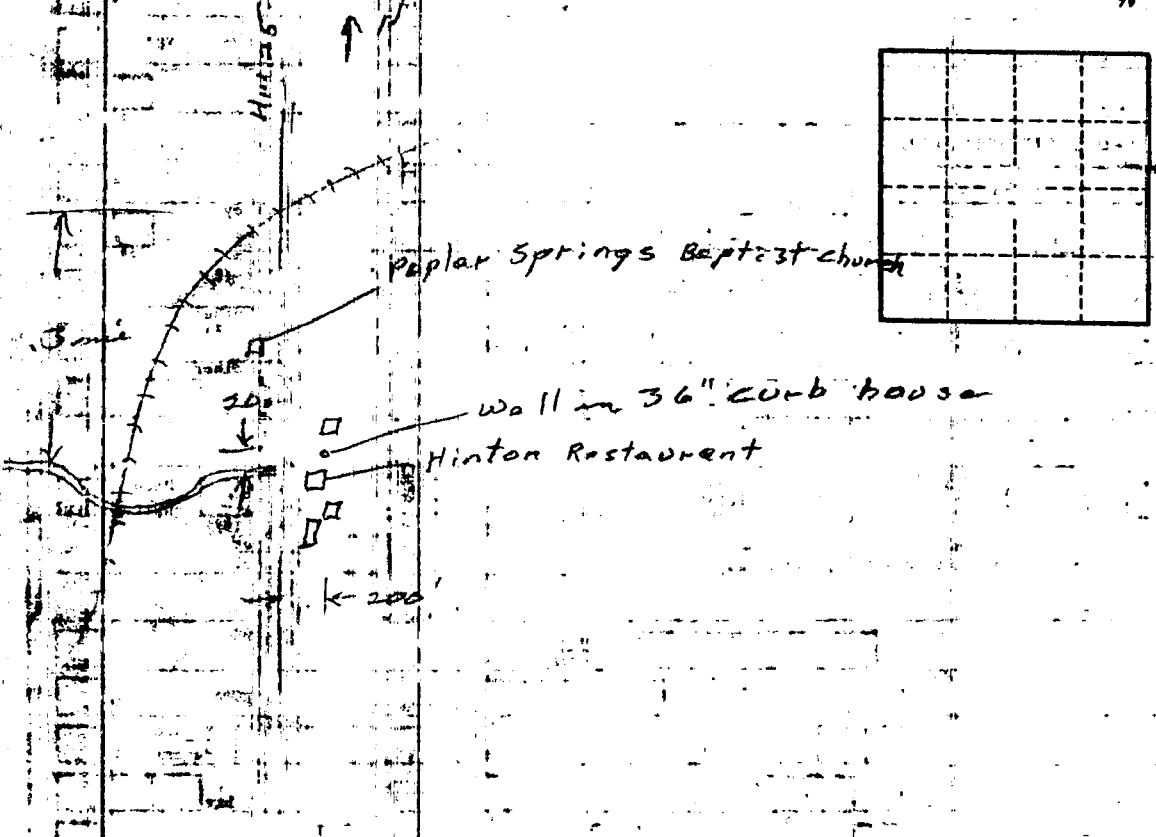 Hwy 25
Poplar Springs Baptist church
.3 mi
20
well in 36" curb house
Hinton Restaurant
200'